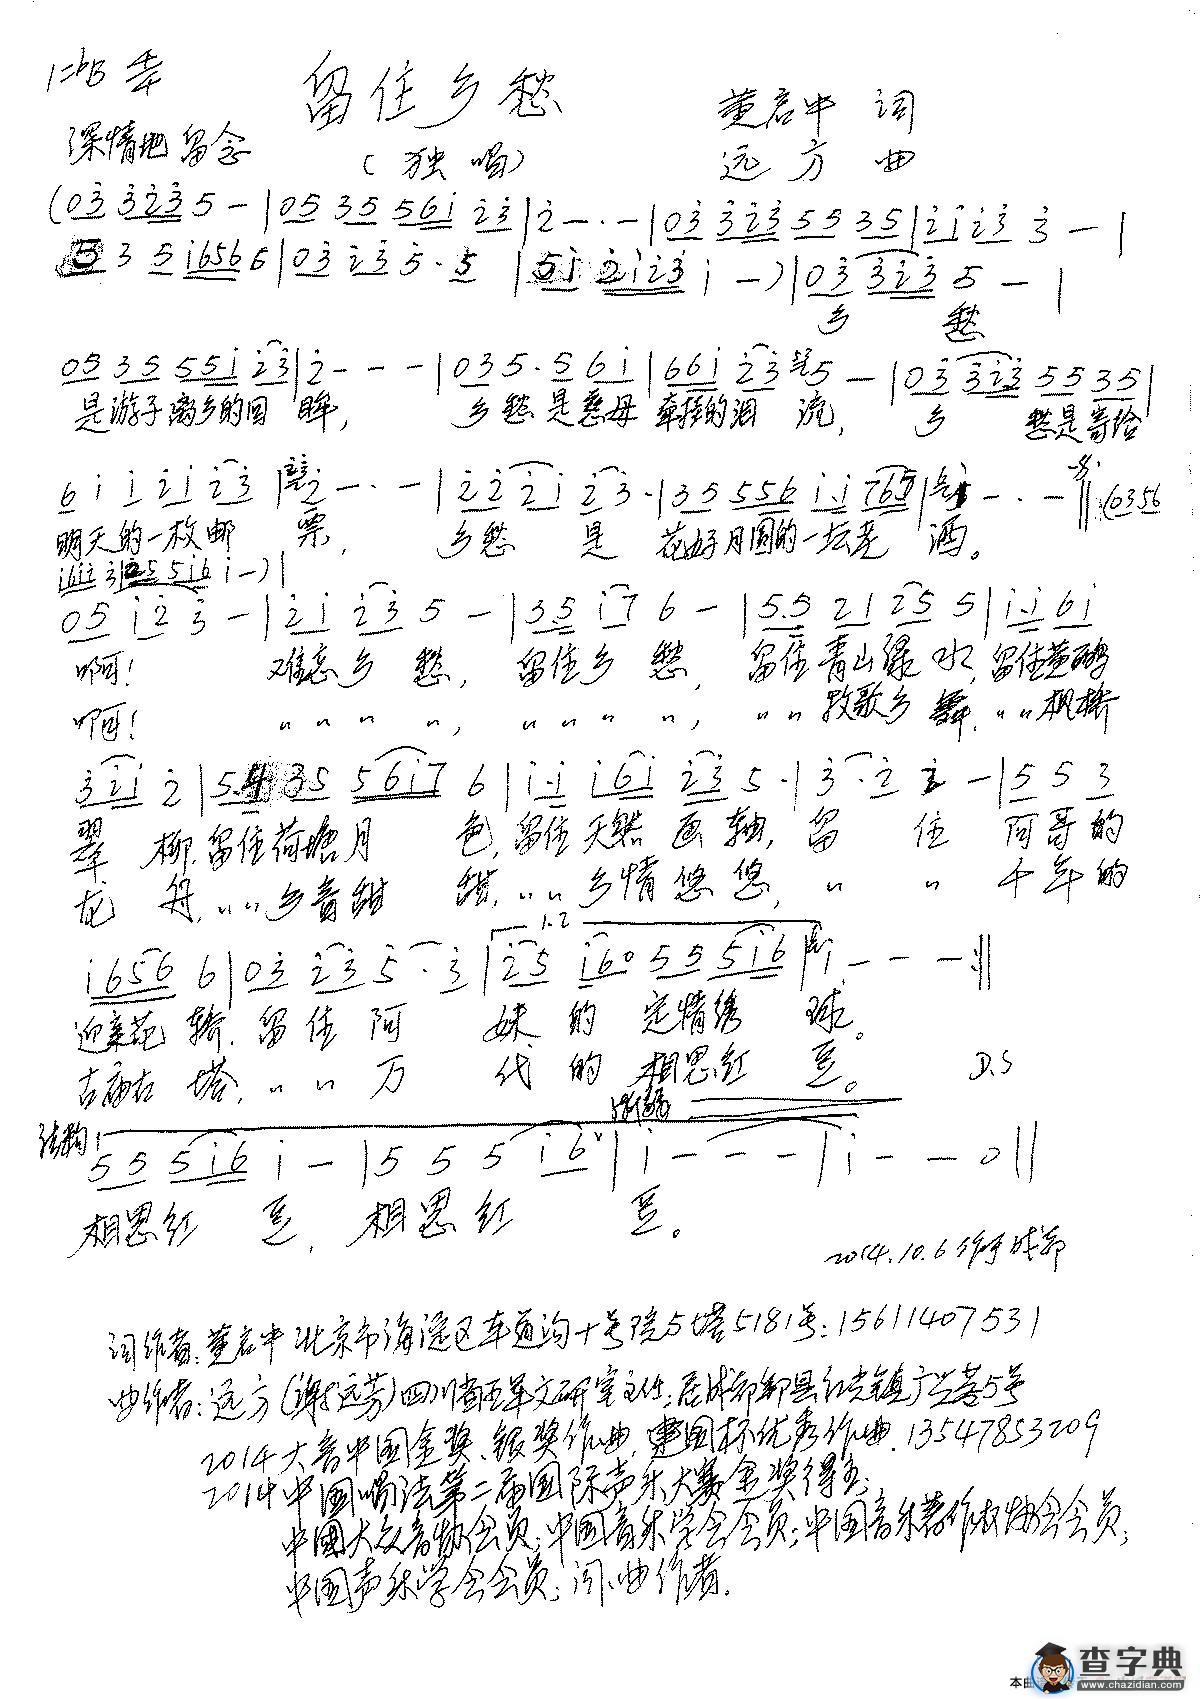 1=♭B 4/4
留住乡愁
深情地 留念
(独唱)
黄启中 词
远方 曲
(03 3235 - |05 35 561 23|2 - · - |03 323 55 35|2123 3 - |
5 3 5 16566|03 23 5 · 5 |51 2123 1 - )|03 323 5 - |
乡 愁
05 35 551 23|2 - - - |035 · 5 61|661 23 5 - |03 323 55 35|
是游子离乡的回 眸, 乡愁是慈母牵挂的泪 流, 乡 愁是寄给
6 1 1 21 23|2 - · - |22 21 23 · |35 556 1·1 765|5 - · - ‖(0356
明天的一枚邮 票, 乡愁 是 花好月圆的一坛老 酒。
05 12 3 - |21 23 5 - |35 17 6 - |5·5 21 25 5|1·1 61
啊! 难忘乡 愁, 留住乡 愁, 留住青山绿 水,留住黄鹂
啊! 〃〃〃〃, 〃〃〃〃, 〃〃牧歌乡 〃〃枫桥
3 21 2|5·4 35 5617 6|1·1 161 23 5 · |3 · 2 2 - |5 5 3
翠 柳,留住荷塘月 色,留住天然画 轴,留 住 阿哥的
龙 舟,〃〃乡音甜 甜,〃〃乡情悠 悠,〃 〃 千年的
1.2
1656 6|03 23 5 · 3|25 160 55 516|1 - - - :‖
迎亲花 轿,留住 阿 妹的 定情绣 球。
古庙古 塔,〃〃万 代的 相思红 豆。 D.S
渐慢
结构
55 516 1 - |5 5 5 16|1 - - - |1 - - 0‖
相思红 豆, 相思红 豆。
2014.10.6作于成都
词作者:黄启中 北京市海淀区车道沟十号院5塔5181号:15611407531
曲作者:远方(谢远芳)四川省 文研室主任:居成都郫县红光镇广兰 5号
2014大音中国金奖、银奖作曲,建国杯优秀作曲.13547853209
2014中国唱法第二届国际声乐大赛金奖得主;
中国大众音协会员;中国音乐学会会员;中国音乐著作权协会会员;
中国声乐学会会员;词、曲作者.
查字典
www.chazidian.com
本曲